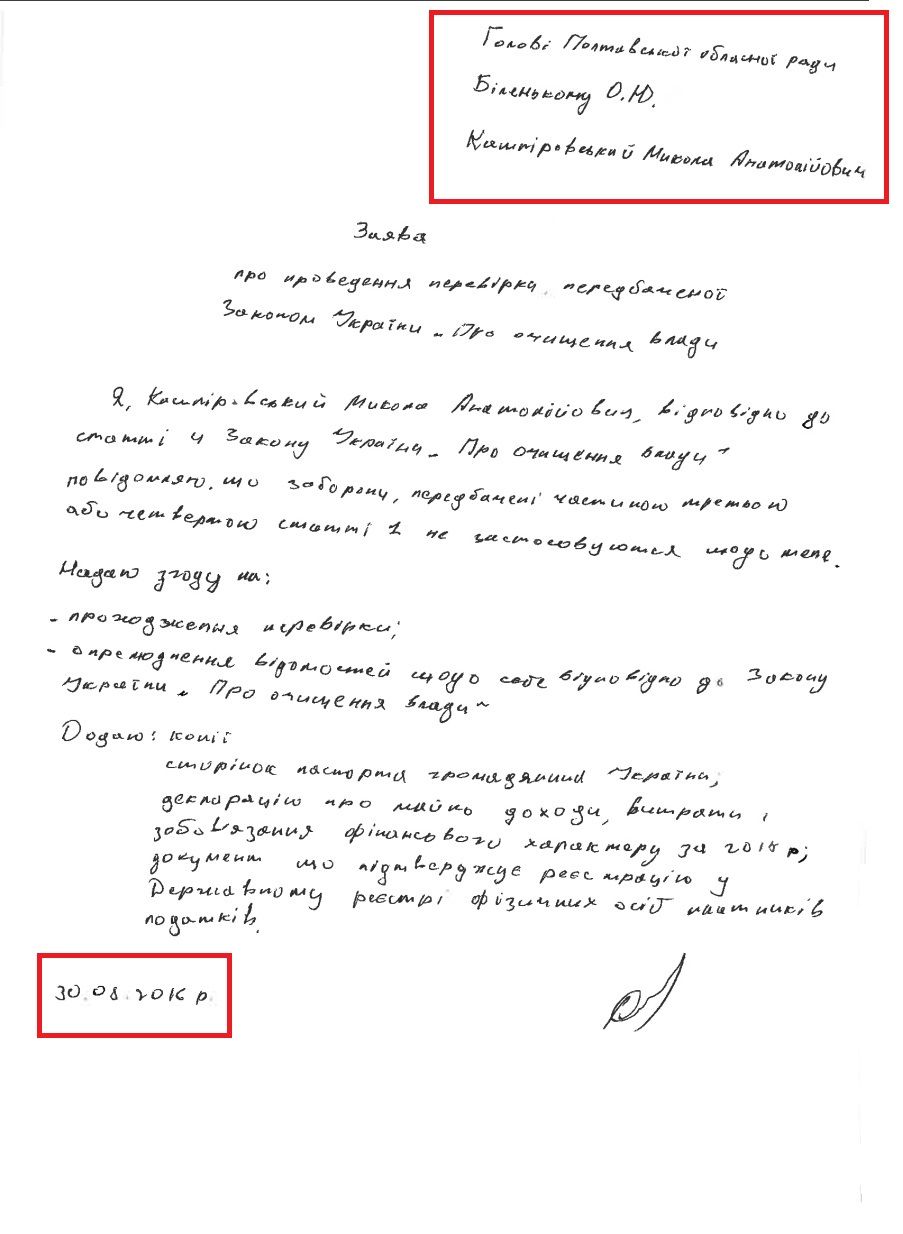 Голові Полтавської обласної ради
Біленькому О.Ю.
Кашпіровський Микола Анатолійович
Заява
про проведення перевірки, передбаченої
Законом України „Про очищення влади
Я, Кашпіровський Микола Анатолійович, відповідно до
статті 4 Закону України „Про очищення влади"
повідомляю, що заборони, передбачені частиною третьою
або четвертою статті 1 не застосовуються щодо мене.
Надаю згоду на:
- проходження перевірки;
- оприлюднення відомостей щодо себе відповідно до Закону
України „Про очищення влади"
Додаю: копії
сторінок паспорта громадянина України;
декларацію про майно доходи, витрати і
зобов'язання фінансового характеру за 2015 р;
документ що підтверджує реєстрацію у
Державному реєстрі фізичних осіб платників
податків.
30.08.2016 р.